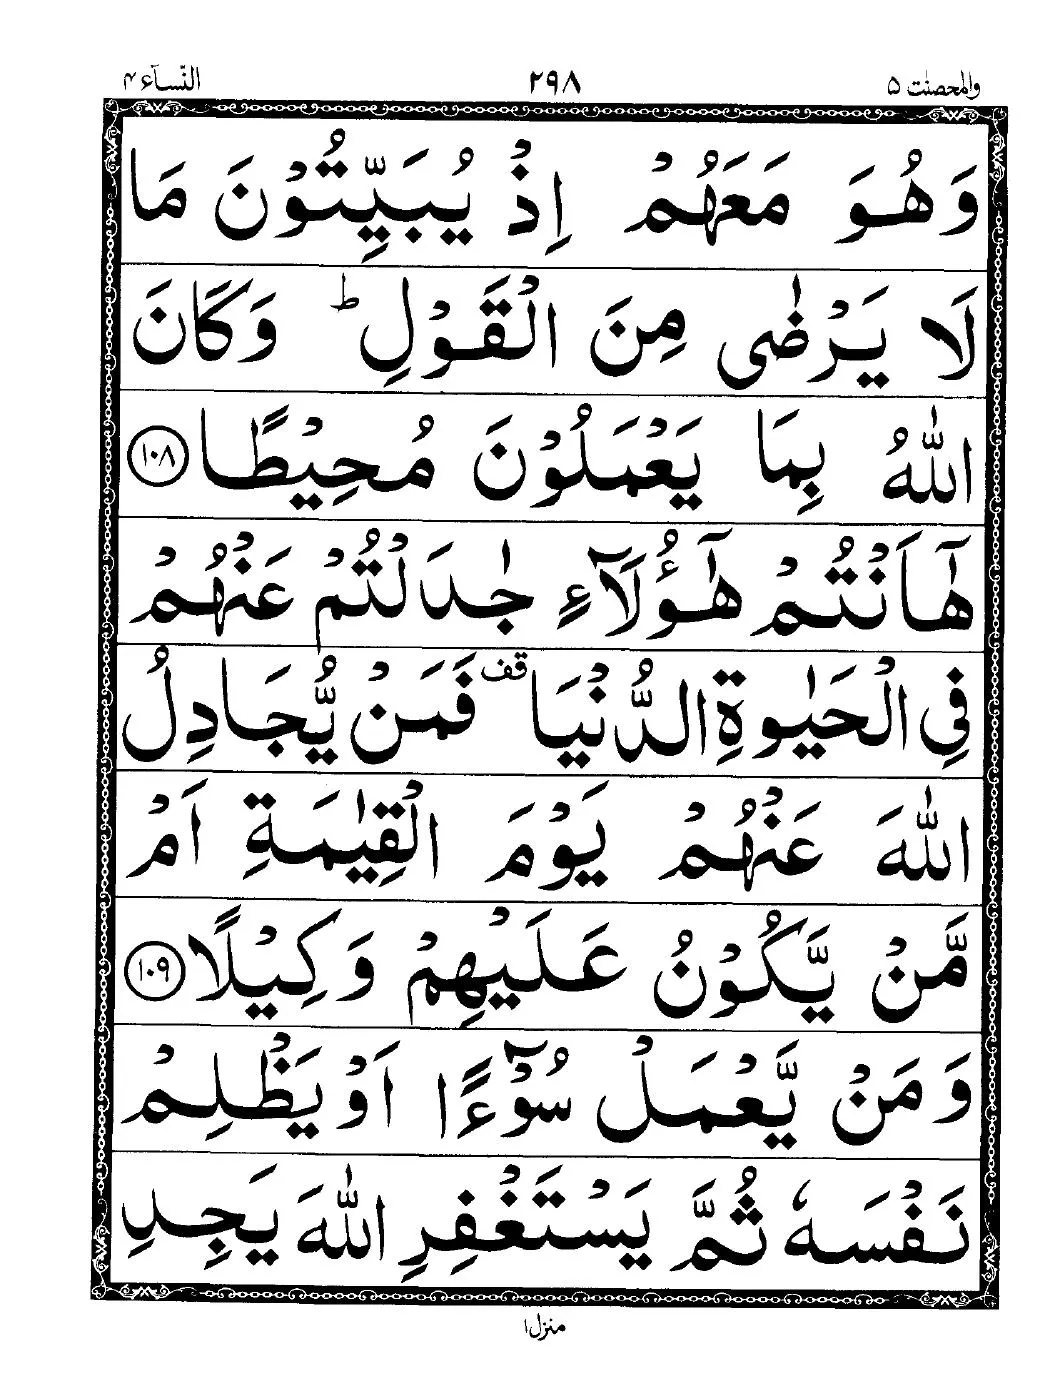 والمحصنٰت ۵ ۲۹۸ النّسآء ۴
وَهُوَ مَعَهُمْ اِذْ يُبَيِّتُوْنَ مَا
لَا يَرْضٰى مِنَ الْقَوْلِ ؕ وَكَانَ
اللّٰهُ بِمَا يَعْمَلُوْنَ مُحِيْطًا ۱۰۸
هٰۤاَنْتُمْ هٰۤؤُلَآءِ جٰدَلْتُمْ عَنْهُمْ
فِى الْحَيٰوةِ الدُّنْيَا قف فَمَنْ يُّجَادِلُ
اللّٰهَ عَنْهُمْ يَوْمَ الْقِيٰمَةِ اَمْ
مَّنْ يَّكُوْنُ عَلَيْهِمْ وَكِيْلًا ۱۰۹
وَمَنْ يَّعْمَلْ سُوْٓءًا اَوْ يَظْلِمْ
نَفْسَهٗ ثُمَّ يَسْتَغْفِرِ اللّٰهَ يَجِدِ
منزل ۱